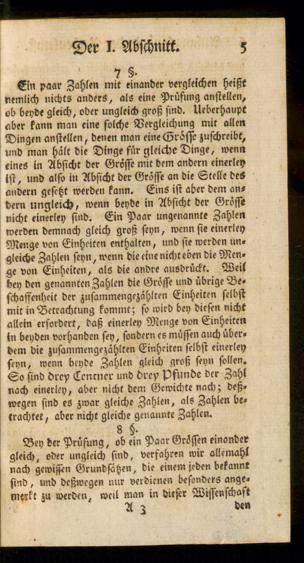 Der I. Abschnitt. 5
7 §.
Ein paar Zahlen mit einander vergleichen heißt
nemlich nichts anders, als eine Prüfung anstellen,
ob beyde gleich, oder ungleich groß sind. Ueberhaupt
aber kann man eine solche Vergleichung mit allen
Dingen anstellen, denen man eine Grösse zuschreibt,
und man hält die Dinge für gleiche Dinge, wenn
eines in Absicht der Grösse mit dem andern einerley
ist, und also in Absicht der Grösse an die Stelle des
andern gesetzt werden kann. Eins ist aber dem an-
dern ungleich, wenn beyde in Absicht der Grösse
nicht einerley sind. Ein Paar ungenannte Zahlen
werden demnach gleich groß seyn, wenn sie einerley
Menge von Einheiten enthalten, und sie werden un-
gleiche Zahlen seyn, wenn die eine nicht eben die Men-
ge von Einheiten, als die andre ausdrückt. Weil
bey den genannten Zahlen die Grösse und übrige Be-
schaffenheit der zusammengezählten Einheiten selbst
mit in Betrachtung kommt; so wird bey diesen nicht
allein erfordert, daß einerley Menge von Einheiten
in beyden vorhanden sey, sondern es müssen auch über-
dem die zusammengezählten Einheiten selbst einerley
seyn, wenn beyde Zahlen gleich groß seyn sollen.
So sind drey Centner und drey Pfunde der Zahl
nach einerley, aber nicht dem Gewichte nach; deß-
wegen sind es zwar gleiche Zahlen, als Zahlen be-
trachtet, aber nicht gleiche genannte Zahlen.
8 §.
Bey der Prüfung, ob ein Paar Grössen einander
gleich, oder ungleich sind, verfahren wir allemahl
nach gewissen Grundsätzen, die einem jeden bekannt
sind, und deßwegen nur verdienen besonders ange-
merkt zu werden, weil man in dieser Wissenschaft
A 3 den